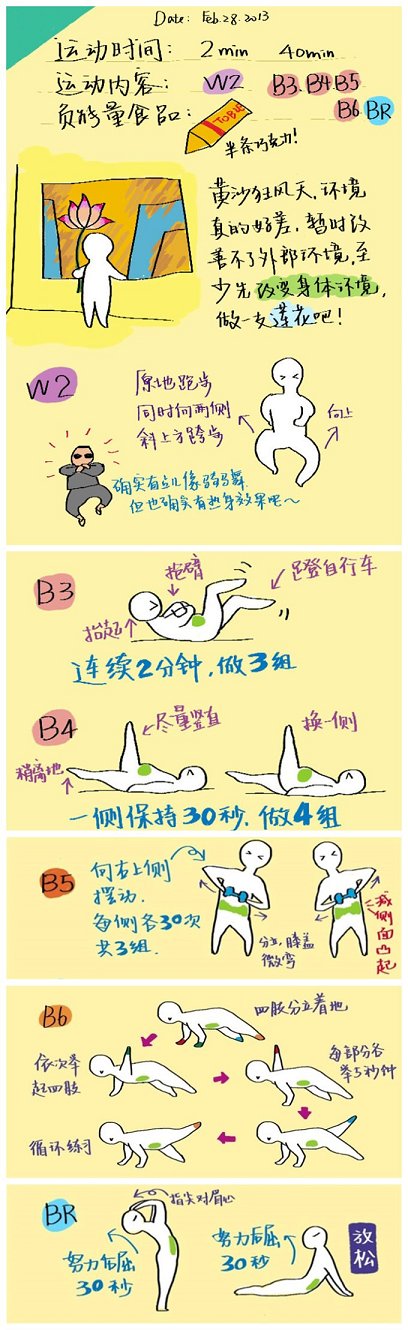 Date: Feb.28.2013
运动时间: 2min 40min
运动内容: W2 B3.B4.B5
B6 BR
负能量食品:
半条巧克力!
黄沙狂风天,环境
真的好差,暂时改
善不了外部环境,至
少先改变身体环境,
做一支莲花吧!
W2
原地跑步
同时向两侧
斜上方跨步
向上
确实有点儿像骑马舞
但也确实有热身效果吧~
B3
抱臂
蹬自行车
抬起
连续2分钟,做3组
B4
尽量竖直
换一侧
稍离地
一侧保持30秒.做4组
B5
向右上侧
摆动.
每侧各30次
共3组.
分立,膝盖
微弯
减侧面凸起
B6
四肢分立着地
依次举
起四肢
每部分各
举5秒钟
循环练习
BR
指尖对眉心
努力后屈
30秒
努力后屈
30秒
放松